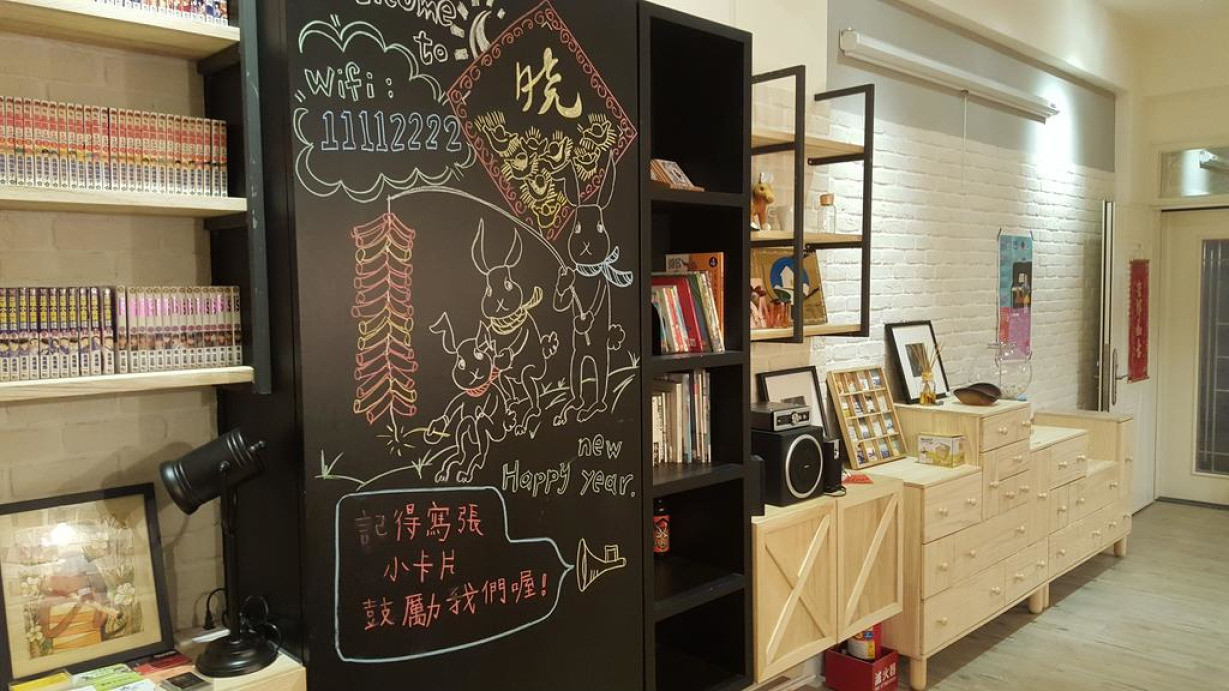 Welcome
to
Wifi:
11112222
曉
new
Happy year.
記得寫張
小卡片
鼓勵我們喔!
滅火器